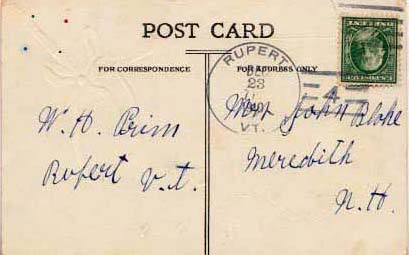 POST CARD
FOR CORRESPONDENCE
FOR ADDRESS ONLY
RUPERT
DEC
23
VT.
W. H. Prim
Rupert V.t.
Mrs John Bloke
Meredith
N.H.